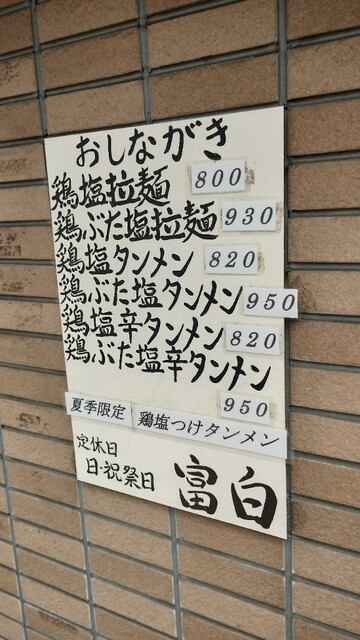 おしながき
鶏塩拉麺 800
鶏ぶた塩拉麺 930
鶏塩タンメン 820
鶏ぶた塩タンメン 950
鶏塩辛タンメン 820
鶏ぶた塩辛タンメン
950
夏季限定 鶏塩つけタンメン
定休日
日・祝祭日
富白